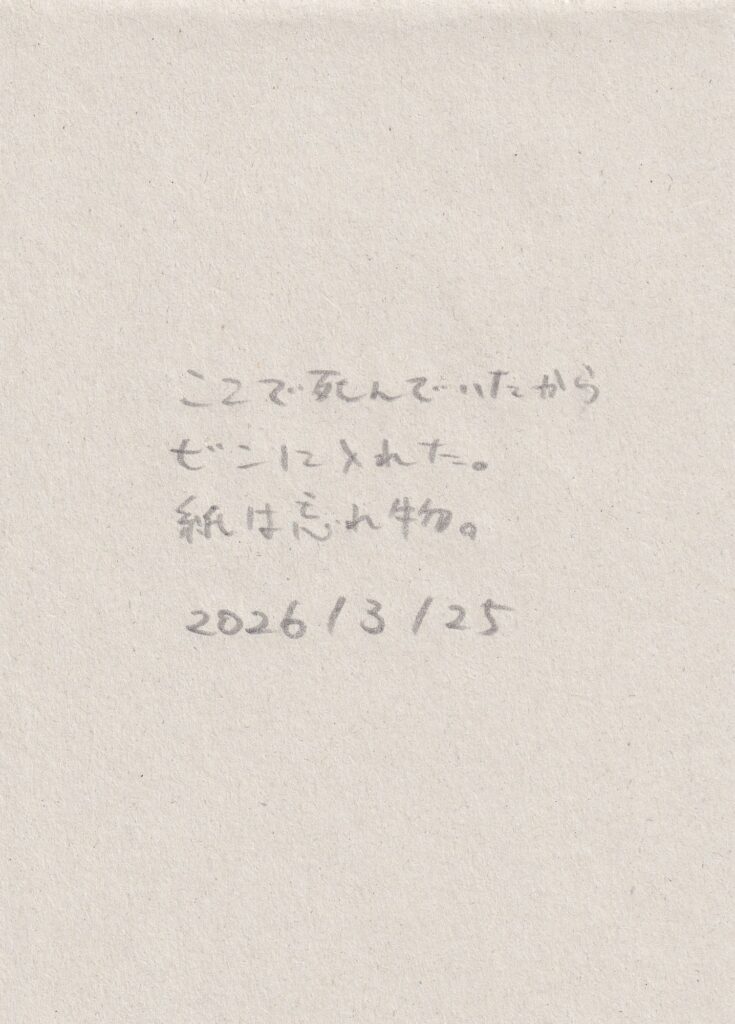 ここで死んでいたから
ビンに入れた。
紙は忘れ物。
2026/3/25